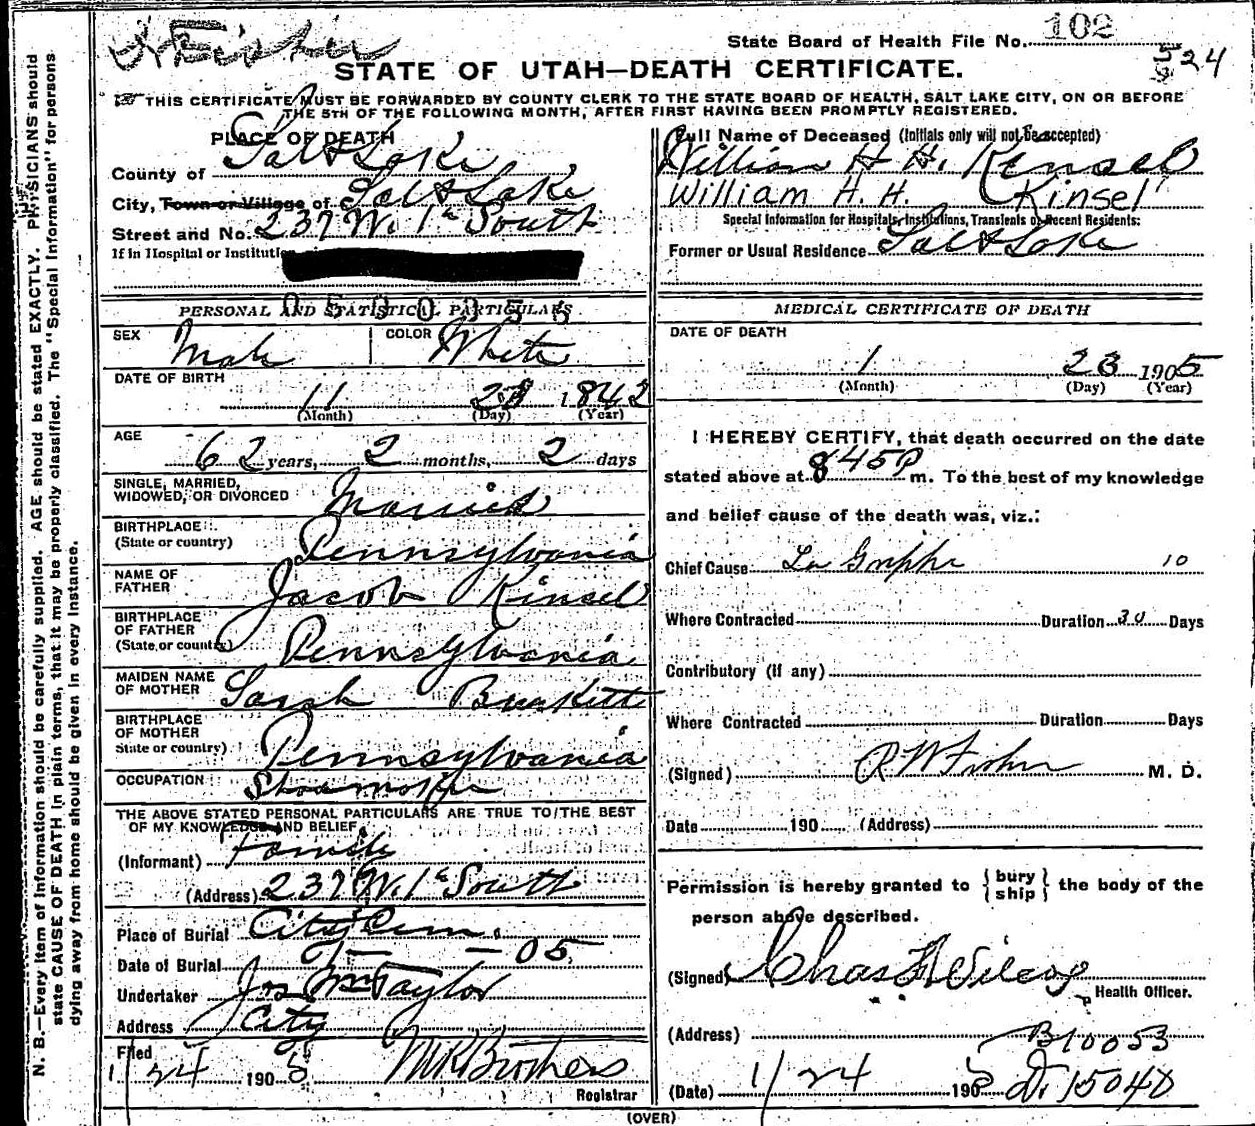 State Board of Health File No. 102
5 24
STATE OF UTAH—DEATH CERTIFICATE.
THIS CERTIFICATE MUST BE FORWARDED BY COUNTY CLERK TO THE STATE BOARD OF HEALTH, SALT LAKE CITY, ON OR BEFORE
THE 5TH OF THE FOLLOWING MONTH, AFTER FIRST HAVING BEEN PROMPTLY REGISTERED.
N. B.—Every item of information should be carefully supplied. AGE should be stated EXACTLY. PHYSICIANS should
state CAUSE OF DEATH in plain terms, that it may be properly classified. The "Special Information" for persons
dying away from home should be given in every instance.
PLACE OF DEATH
County of Salt Lake
City, Town or Village of Salt Lake
Street and No. 237 W. 1st South
If in Hospital or Institution
PERSONAL AND STATISTICAL PARTICULARS
SEX Male COLOR White
DATE OF BIRTH
11 1842
(Month) (Day) (Year)
AGE
62 years, 2 months, 2 days
SINGLE, MARRIED,
WIDOWED, OR DIVORCED Married
BIRTHPLACE
(State or country) Pennsylvania
NAME OF
FATHER Jacob Kinsel
BIRTHPLACE
OF FATHER
(State or country) Pennsylvania
MAIDEN NAME
OF MOTHER Sarah
BIRTHPLACE
OF MOTHER
State or country) Pennsylvania
OCCUPATION Shoemaker
THE ABOVE STATED PERSONAL PARTICULARS ARE TRUE TO THE BEST
OF MY KNOWLEDGE AND BELIEF
(Informant) Family
(Address) 237 W. 1st South
Place of Burial City Cem.
Date of Burial — 05
Undertaker Jos Wm Taylor
Address City
Filed
1/24 1905 Brothers
Registrar
Full Name of Deceased (Initials only will not be accepted)
William H. H. Kensel
William H. H. (Kinsel
Special Information for Hospitals, Institutions, Transients or Recent Residents:
Former or Usual Residence Salt Lake
MEDICAL CERTIFICATE OF DEATH
DATE OF DEATH
1 23 1905
(Month) (Day) (Year)
I HEREBY CERTIFY, that death occurred on the date
stated above at 8 45 P m. To the best of my knowledge
and belief cause of the death was, viz.:
Chief Cause La Grippe 10
Where Contracted Duration 30 Days
Contributory (if any)
Where Contracted Duration Days
(Signed) R W Fisher M. D.
Date 190 (Address)
Permission is hereby granted to { bury
ship } the body of the
person above described.
(Signed) Chas F Wilcox
Health Officer.
(Address) B10053
(Date) 1/24 1905 D. 15040
(OVER)